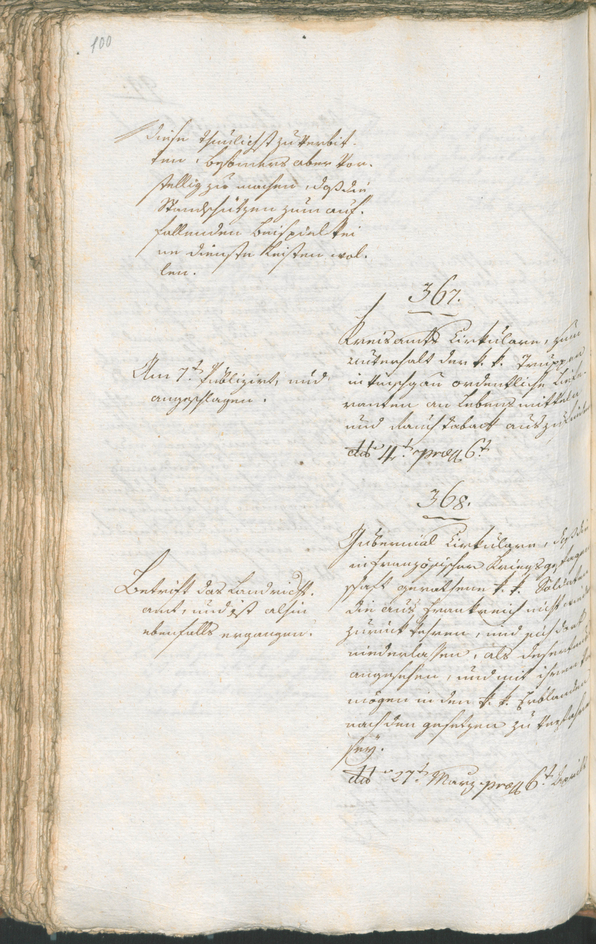 100
diese thunlichst zu verbit-
ten, besonders aber vor-
stellig zu machen, daß die
Standschützen zum auf-
fallenden Beispiel kei
ne Dienste leisten wol-
len.
367.
Kreisamts Cirkulare, zum
Unterhalt der k. k. Truppen
im Vinschgau ordentliche Liefe-
ranten an Lebensmitteln
und Rauchtabak
ddo 4t. præs 6t
Am 7t. Publizirt, und
angeschlagen.
368.
Gubernial Cirkulare, daß die
in französischer Kriegsgefangen
schaft gerathene k. k. Soldaten
die aus Frankreich nicht
zurück kehren, und sich dort
niederlassen, als Deserteurs
angesehen, und mit ihrem
mögen in den k. k. Erblanden
nach den Gesetzen zu verfahren
sey.
ddo 27t. März præs 6t. April
Betrift das Landricht-
amt, und ist alhin
ebenfalls ergangen.